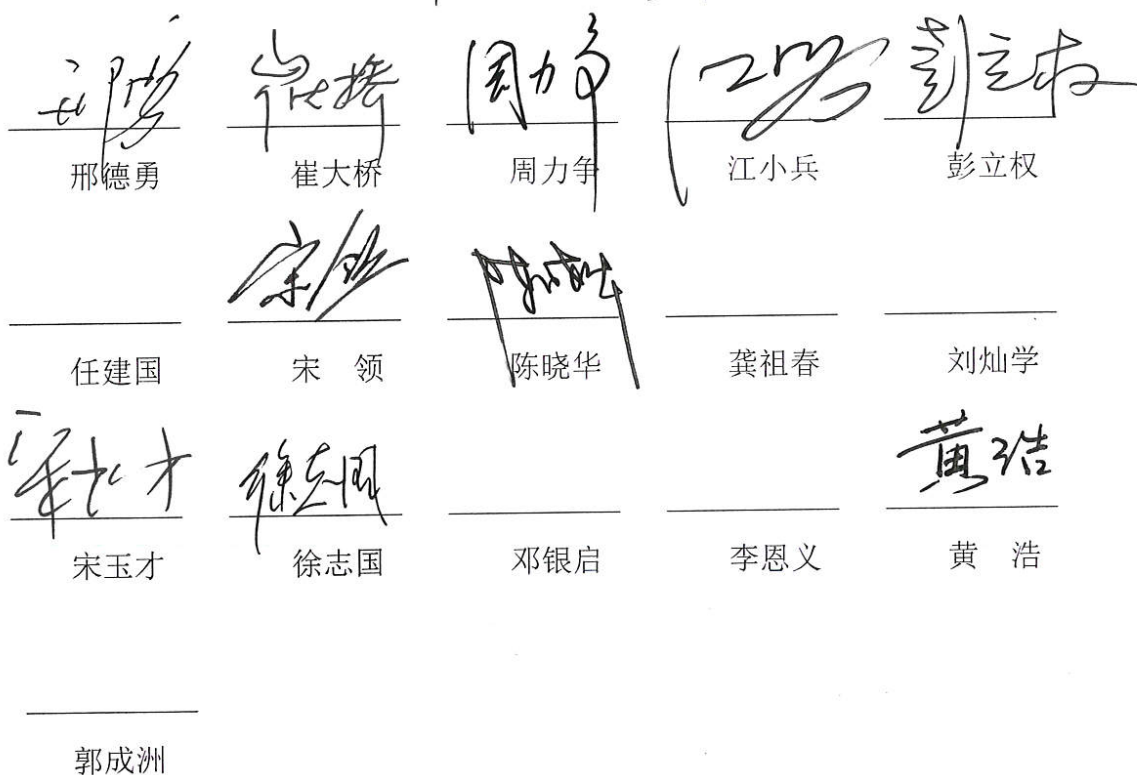 邢德勇 崔大桥 周力争 江小兵 彭立权
宋领
任建国 宋　领 陈晓华 龚祖春 刘灿学
徐志国 黄浩
宋玉才 徐志国 邓银启 李恩义 黄　浩
郭成洲